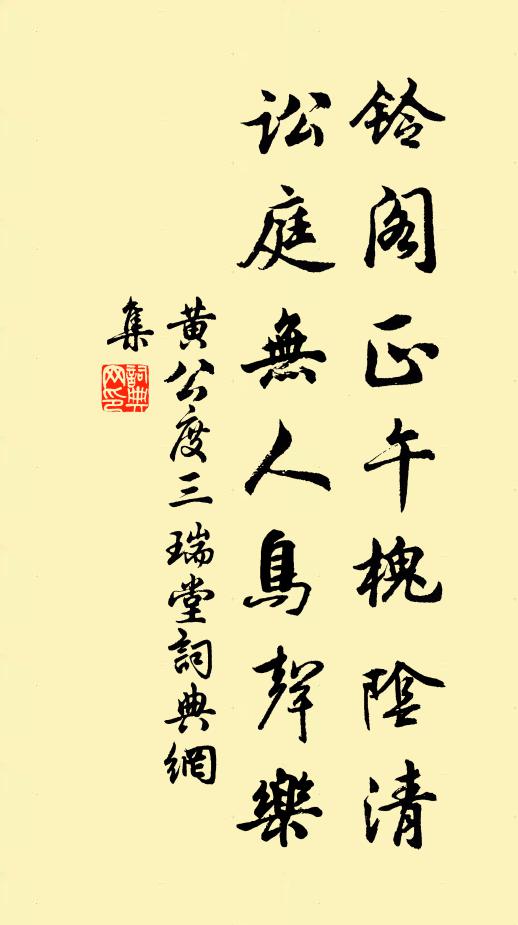 鈴閣正午槐陰清
訟庭無人鳥聲樂
黃公度三瑞堂詞典網
集
詞典
网印